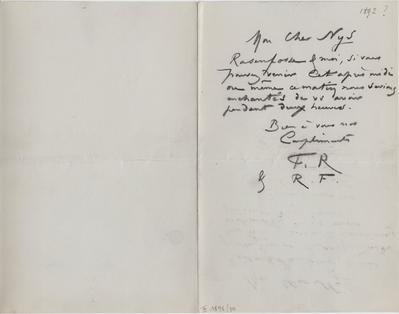 1892 ?
Mon Cher Nys
Rassenfosse & moi, si vous
pouvez venir cet après midi
ou même ce matin, nous serions
enchantés de vs avoir
pendant deux heures.
Bien à vous nos
Compliments
F. R
& R. F.